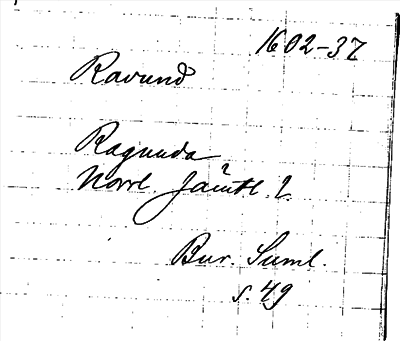 1602-37
Ravund
Ragunda
Norrl. Jämtl. l.
Bur. Suml.
s. 49